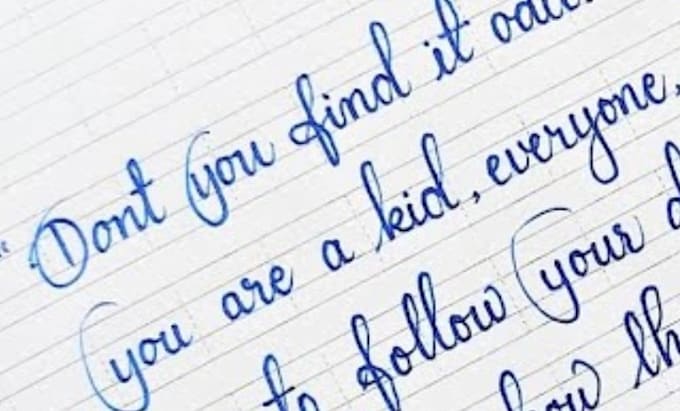 "Dont you find it
you are a kid, everyone,
to follow your